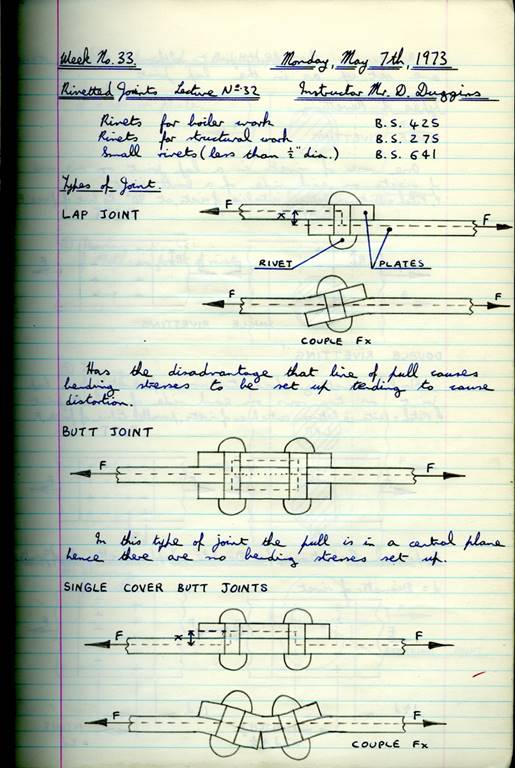 Week No. 33. Monday, May 7th, 1973
Rivetted Joints Lecture No. 32 Instructor Mr. D. Duggins
Rivets for boiler work B.S. 425
Rivets for structural work B.S. 275
Small rivets (less than ½" dia.) B.S. 641
Types of Joint.
LAP JOINT
F x F
RIVET PLATES
F F
COUPLE Fx
Has the disadvantage that line of pull causes
bending stresses to be set up tending to cause
distortion.
BUTT JOINT
F F
In this type of joint the pull is in a central plane
hence there are no bending stresses set up.
SINGLE COVER BUTT JOINTS
F x F
F F
COUPLE Fx